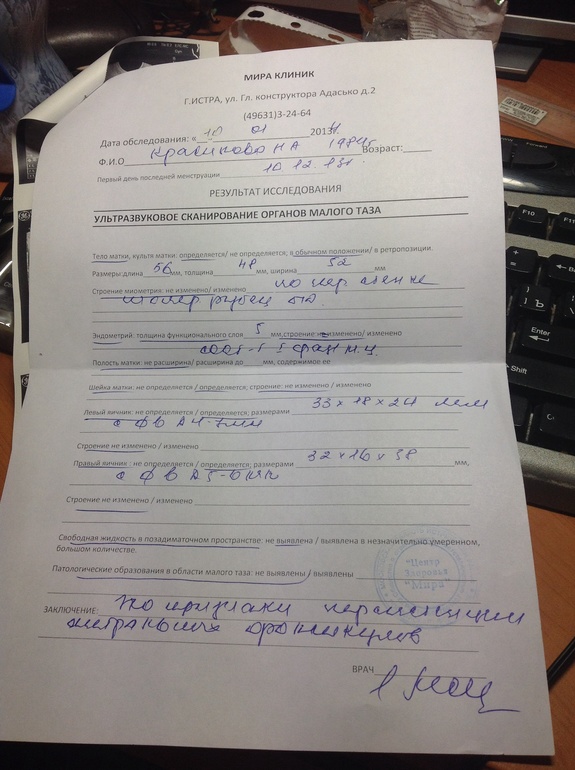 МИРА КЛИНИК
Г.ИСТРА, ул. Гл. конструктора Адасько д.2
(49631)3-24-64
Дата обследования: « 10 01 201
Ф.И.О Возраст:
Первый день последней менструации 10.12.13г.
РЕЗУЛЬТАТ ИССЛЕДОВАНИЯ
УЛЬТРАЗВУКОВОЕ СКАНИРОВАНИЕ ОРГАНОВ МАЛОГО ТАЗА
Тело матки, культя матки: определяется/ не определяется; в обычном положении/ в ретропозиции.
Размеры:длина 56 мм, толщина мм, ширина 52 мм
Строение миометрия: не изменено/ изменено по пер стенке
рубец
Эндометрий: толщина функционального слоя 5 мм,строение не изменено/ изменено
соот-т I фазе м.ц.
Полость матки: не расширина/ расширина до мм, содержимое ее
Шейка матки: не определяется / определяется; строение: не изменено / изменено
Левый яичник: не определяется / определяется; размерами 33 х 18 х 24 мм
с ф в
Строение не изменено / изменено
Правый яичник : не определяется / определяется; размерами 32 х 16 х 38 мм,
с ф в
Строение не изменено / изменено
Свободная жидкость в позадиматочном пространстве: не выявлена / выявлена в незначительно умеренном,
большом количестве.
Патологические образования в области малого таза: не выявлены / выявлены
"Центр
Здоровья
"Мира"
ЗАКЛЮЧЕНИЕ: Эхо признаки персистенции
антральных фолликулов
ВРАЧ
F10
F11
Enter
Shift